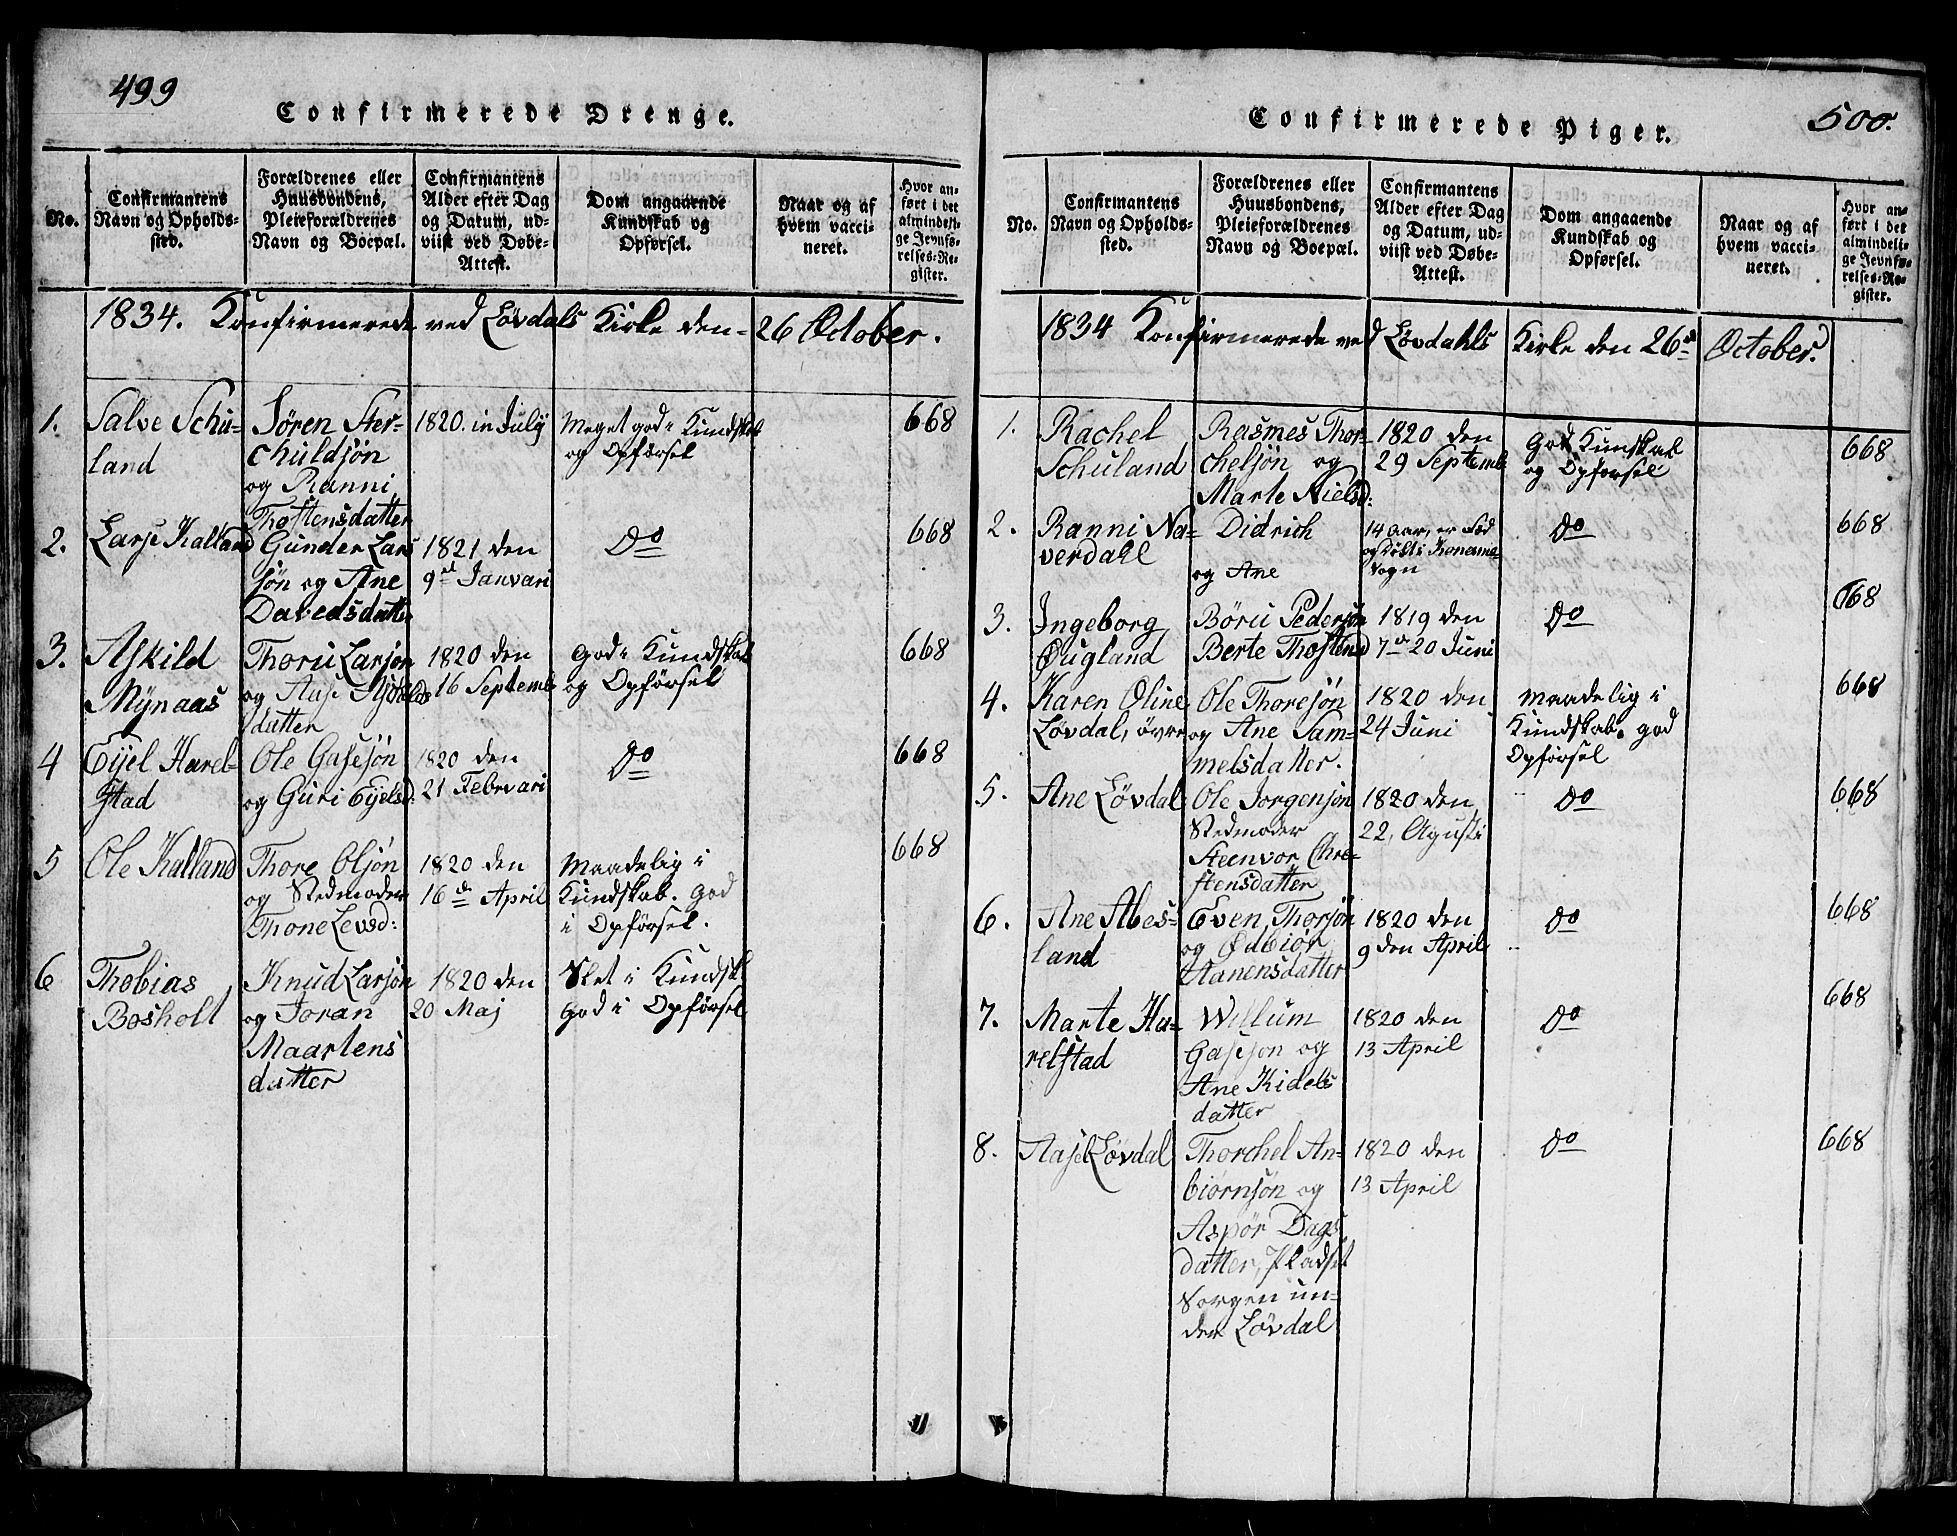 499
Confirmerede Drenge.
No.
Confirmantens
Navn og Opholds-
sted.
Forældrenes eller
Huusbondens,
Pleieforældrenes
Navn og Boepæl.
Confirmantens
Alder efter Dag
og Datum, ud-
viist ved Døbe-
Attest.
Dom angaaende
Kundskab og
Opførsel.
Naar og af
hvem vacci-
neret.
Hvor an-
ført i det
almindeli-
ge Jevnfø-
relses-Re-
gister.
1834. Konfirmerede ved Løvdals Kirke den 26 October.
1.
Salve Schu-
land
Søren Ster-
chuldsøn
og Ranni
Thostensdatter
1820. in July
Meget god Kundskab
og Opførsel
668
2.
Larse Kalland
Gunder Lars
søn og Ane
Davedsdatter
1821 den
9de Janvari
Do
668
3.
Askild
Mynaas
Thoru Larsøn
og Aase
datter
1820 den
16 Septemb
God Kundskab
og Opførsel
668
4
Eyel Harel-
stad
Ole Gasesøn
og Guri Eyelsd:
1820 den
21 Febrvari
Do
668
5
Ole Kalland
Thore Olsøn
og Stedmoder
Thone Levsd:
1820 den
16de April
Maadelig i
Kundskab. God
i Opførsel.
668
6
Thobias
Bosholt
Knud Larsøn
og Joran
Maartens
datter
1820 den
20 Maj
Slet i Kundsk
God i Opførsel
500.
Confirmerede Piger.
No.
Confirmantens
Navn og Opholds-
sted.
Forældrenes eller
Huusbondens,
Pleieforældrenes
Navn og Boepæl.
Confirmantens
Alder efter Dag
og Datum, ud-
viist ved Døbe-
Attest.
Dom angaaende
Kundskab og
Opførsel.
Naar og af
hvem vacci-
neret.
Hvor an-
ført i det
almindeli-
ge Jevnfø-
relses-Re-
gister.
1834 Konfirmerede ved Løvdahls Kirke den 26de October.
1.
Rachel
Schuland
Rasmes Thor-
chelsøn og
Marte Nielsd:
1820 den
29 Septemb
God Kundskab
og Opførsel
668
2.
Ranni Na-
verdall
Didrich
og Ane
14 aar, er Fød
Sogn
Do
668
3.
Ingeborg
Øugland
Børu Pedersøn
Berte Thostensd
1819 den
20 Juni
Do
668
4.
Karen Oline
Løvdal, øvre
Ole Thoresøn
og Ane Sam-
melsdatter.
1820 den
24 Juni
Maadelig i
Kundskab. god
Opførsel
668
5.
Ane Løvdal
Ole Jorgensøn
Stedmoder
Steenvor Chre-
stensdatter
1820 den
22, Agusti
Do
668
6.
Ane Abes-
land
Even Thorsøn
og Ødbiør
Hanensdatter
1820 den
9 den April
Do
668
7.
Marte Ha-
relstad
Willum
Gasesøn og
Ane Kidels
datter
1820 den
13 April
Do
668
8.
Aase Løvdal
Thorchel An-
biørnsøn og
Aspør Dags
datter, Pladset
Sorgen un-
der Løvdal
1820 den
13 April
Do
668